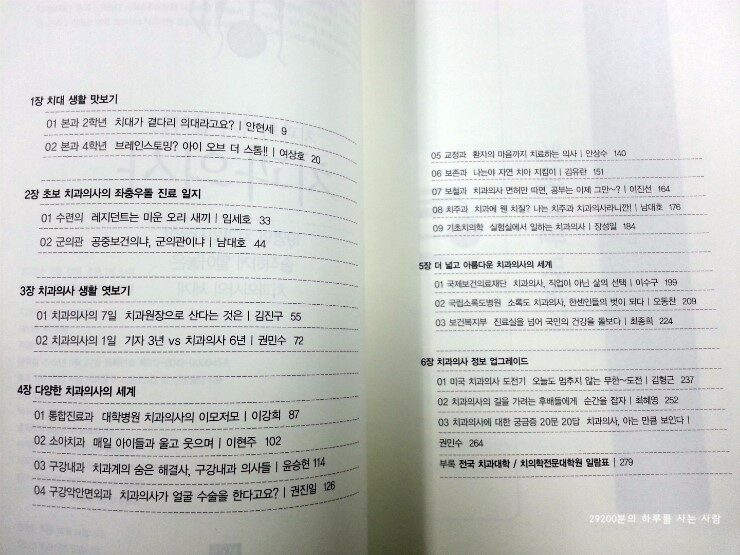 1장 치대 생활 맛보기
01 본과 2학년 치대가 곁다리 의대라고요? | 안현세 9
02 본과 4학년 브레인스토밍? 아이 오브 더 스톰!! | 여상호 20
2장 초보 치과의사의 좌충우돌 진료 일지
01 수련의 레지던트는 미운 오리 새끼 | 임세호 33
02 군의관 공중보건의냐, 군의관이냐 | 남대호 44
3장 치과의사 생활 엿보기
01 치과의사의 7일 치과원장으로 산다는 것은 | 김진구 55
02 치과의사의 1일 기자 3년 vs 치과의사 6년 | 권민수 72
4장 다양한 치과의사의 세계
01 통합진료과 대학병원 치과의사의 이모저모 | 이강희 87
02 소아치과 매일 아이들과 울고 웃으며 | 이현주 102
03 구강내과 치과계의 숨은 해결사, 구강내과 의사들 | 윤승현 114
04 구강악안면외과 치과의사가 얼굴 수술을 한다고요? | 권진일 126
05 교정과 환자의 마음까지 치료하는 의사 | 안상수 140
06 보존과 나는야 자연 치아 지킴이 | 김유란 151
07 보철과 치과의사 면허만 따면, 공부는 이제 그만~? | 이진선 164
08 치주과 치과에 웬 치질? 나는 치주과 치과의사라니깐! | 남대호 176
09 기초치의학 실험실에서 일하는 치과의사 | 장성일 184
5장 더 넓고 아름다운 치과의사의 세계
01 국제보건의료재단 치과의사, 직업이 아닌 삶의 선택 | 이수구 199
02 국립소록도병원 소록도 치과의사, 한센인들의 벗이 되다 | 오동찬 209
03 보건복지부 진료실을 넘어 국민의 건강을 돌보다 | 최종희 224
6장 치과의사 정보 업그레이드
01 미국 치과의사 도전기 오늘도 멈추지 않는 무한~도전 | 김형근 237
02 치과의사의 길을 가려는 후배들에게 순간을 잡자 | 최혜영 252
03 치과의사에 대한 궁금증 20문 20답 치과의사, 아는 만큼 보인다 |
권민수 264
부록 전국 치과대학 / 치의학전문대학원 일람표 | 279
29200분의 하루를 사는 사람